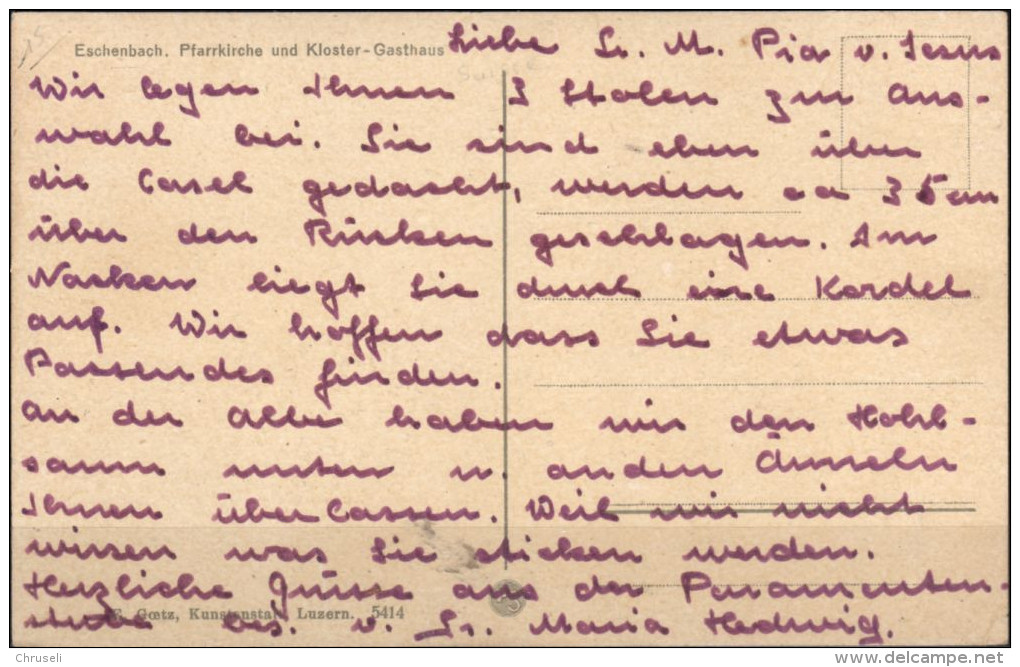 Eschenbach. Pfarrkirche und Kloster-Gasthaus
Liebe Sr. M. Pia v. Jesus
Wir legen Ihnen 3 Stolen zur Aus-
wahl bei. Sie sind eben über
die Casel gedacht, werden ca 35 cm
über den Rücken geschlagen. Am
Nacken liegt Sie durch eine Kordel
auf. Wir hoffen dass Sie etwas
Passendes finden.
An der Albe haben wir den Hohl-
saum unten u. an den Ärmeln
Ihnen überlassen. Weil wir nicht
wissen was Sie sticken werden.
Herzliche Grüsse aus der Paramenten-
stube bes. v. Sr. Maria Hedwig.
E. Gœtz, Kunstanstalt Luzern. 5414
Chruseli
www.delcampe.net